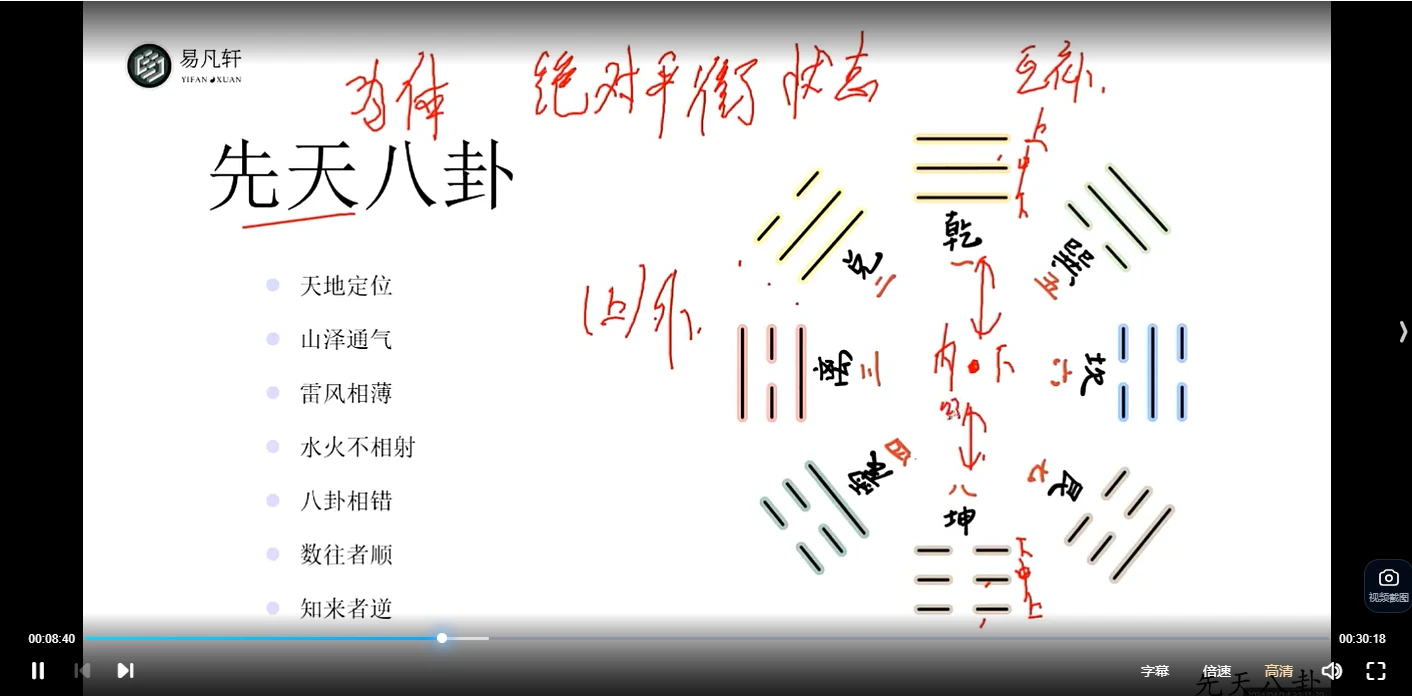 易凡轩
YIFAN XUAN
为体 绝对平衡 状态 互补
先天八卦
天地定位
山泽通气
雷风相薄
水火不相射
八卦相错
数往者顺
知来者逆
(上)外
上
中
下
乾
一
兑
二
巽
五
离
三
坎
六
内 下
震
四
艮
七
八
坤
下
中
上
视频截图
00:08:40
00:30:18
字幕 倍速 高清
先天八卦